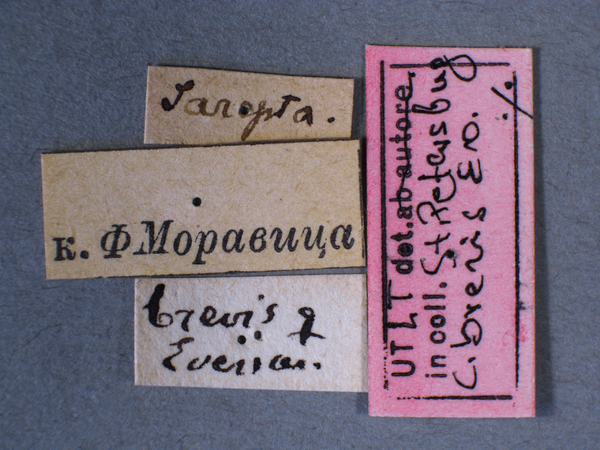 Sarepta.
к. Ф Моравица
brevis ♀
Eversm.
UT LT det. ab autore.
in coll. St Petersburg
C. brevis Ev.